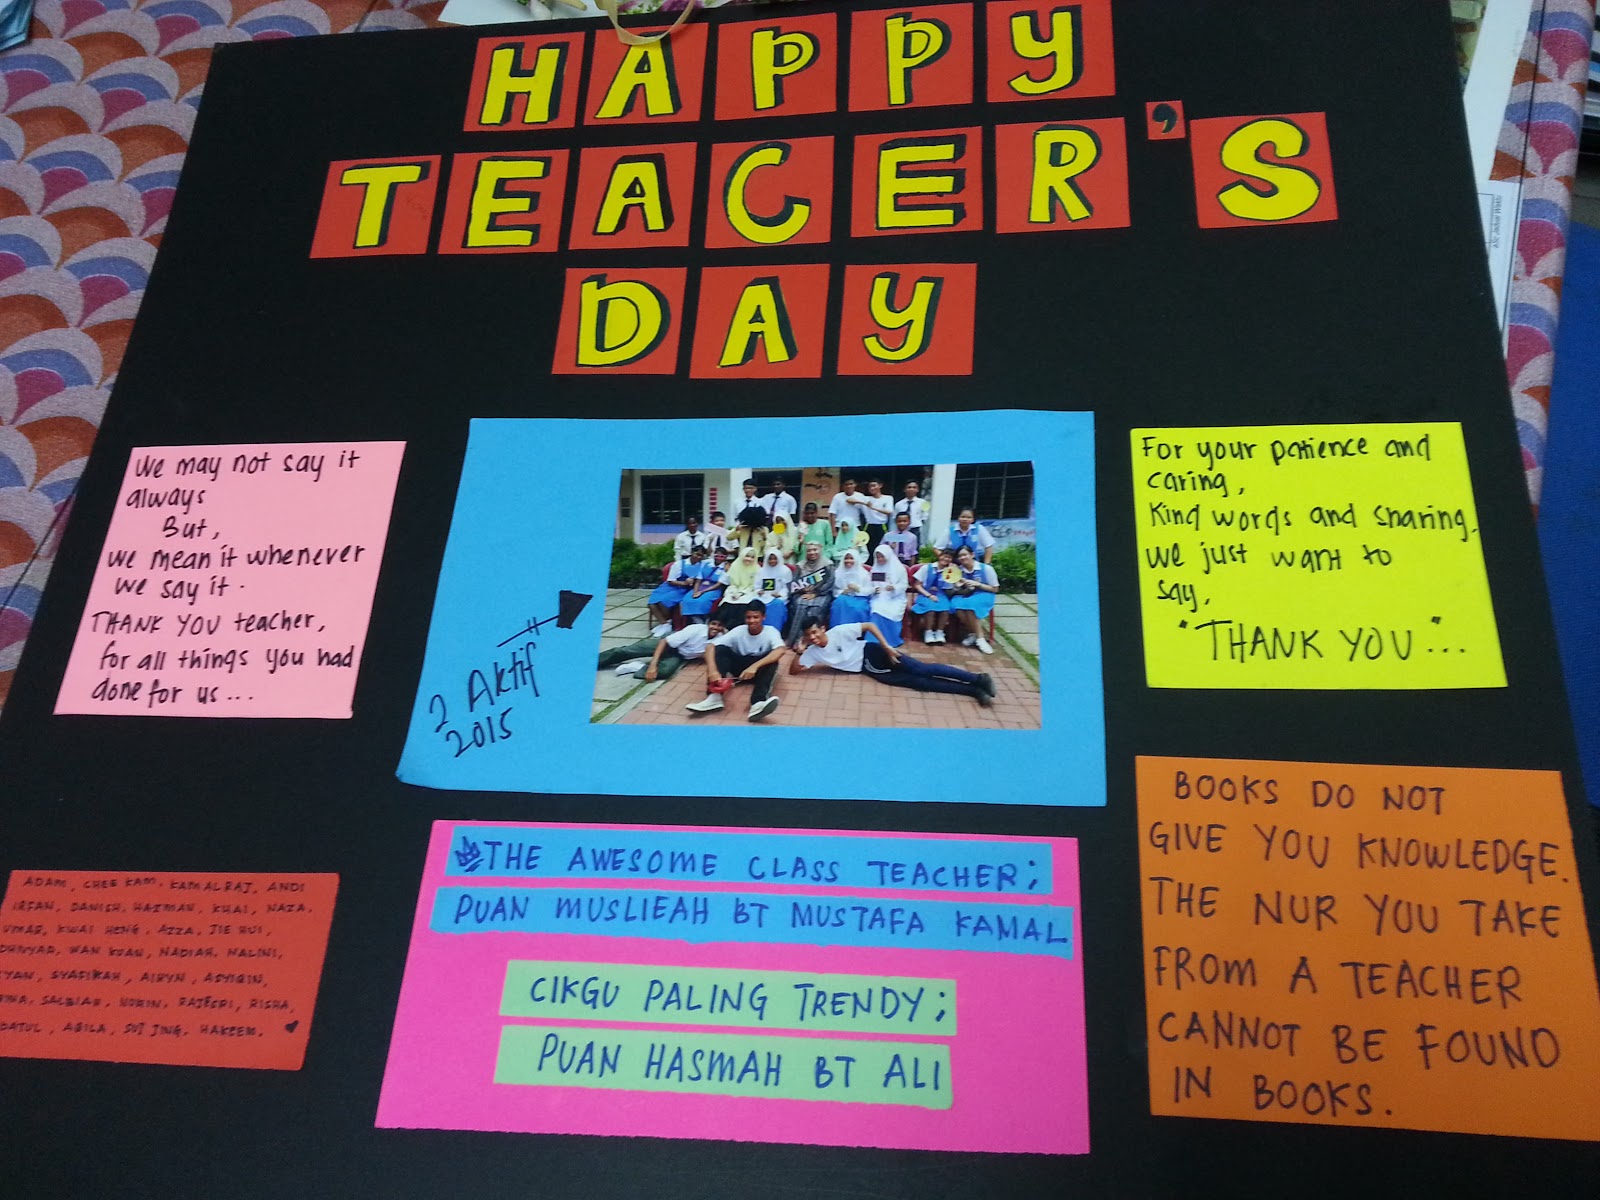 HAPPY
TEACER'S
DAY
We may not say it
always
But,
we mean it whenever
we say it.
THANK YOU teacher,
for all things you had
done for us...
2 Aktif
2015
AKTIF
2
For your patience and
caring,
Kind words and sharing,
We just want to
say,
"THANK YOU"...
THE AWESOME CLASS TEACHER;
PUAN MUSLIEAH BT MUSTAFA KAMAL
CIKGU PALING TRENDY;
PUAN HASMAH BT ALI
BOOKS DO NOT
GIVE YOU KNOWLEDGE.
THE NUR YOU TAKE
FROM A TEACHER
CANNOT BE FOUND
IN BOOKS.
ADAM, CHEE KAM, KAMALRAJ, ANDI
IRFAN, DANISH, HAZMAN, KHAI, NAZA,
UMAR, KWAI HENG, AZZA, JIE HUI,
WAN KUAN, NADIAH, NALINI,
SYAFIKAH, AIRYN, ASYIQIN,
SALBIAH, NORIN, RAJESRI, RISHA,
AQILA, SUI JING, HAKEEM.